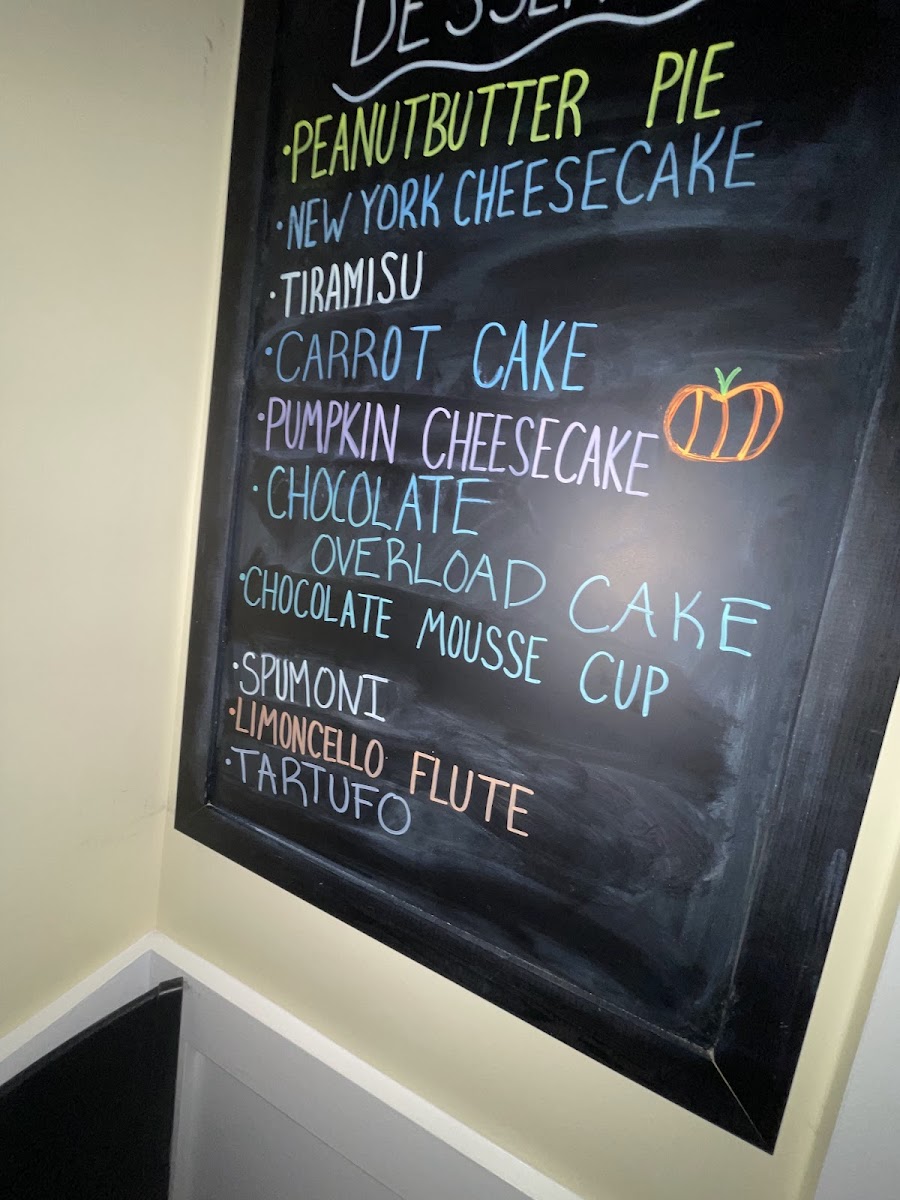 • PEANUTBUTTER PIE
• NEW YORK CHEESECAKE
• TIRAMISU
• CARROT CAKE
• PUMPKIN CHEESECAKE
• CHOCOLATE
OVERLOAD CAKE
• CHOCOLATE MOUSSE CUP
• SPUMONI
• LIMONCELLO FLUTE
• TARTUFO